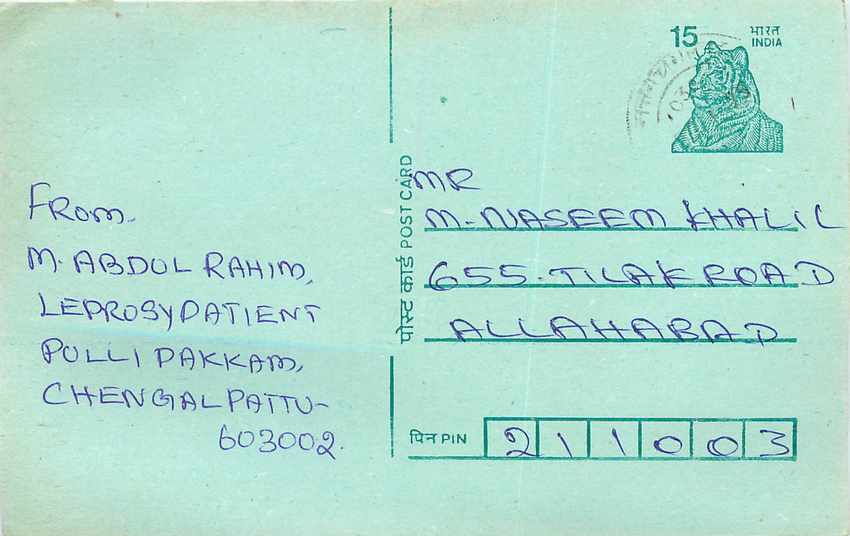 15
भारत
INDIA
पोस्ट कार्ड POST CARD
FROM.
M. ABDUL RAHIM,
LEPROSY PATIENT
PULLI PAKKAM,
CHENGALPATTU-
603002.
MR
M. NASEEM KHALIL
655. TILAK ROAD
ALLAHABAD
पिन PIN 211003